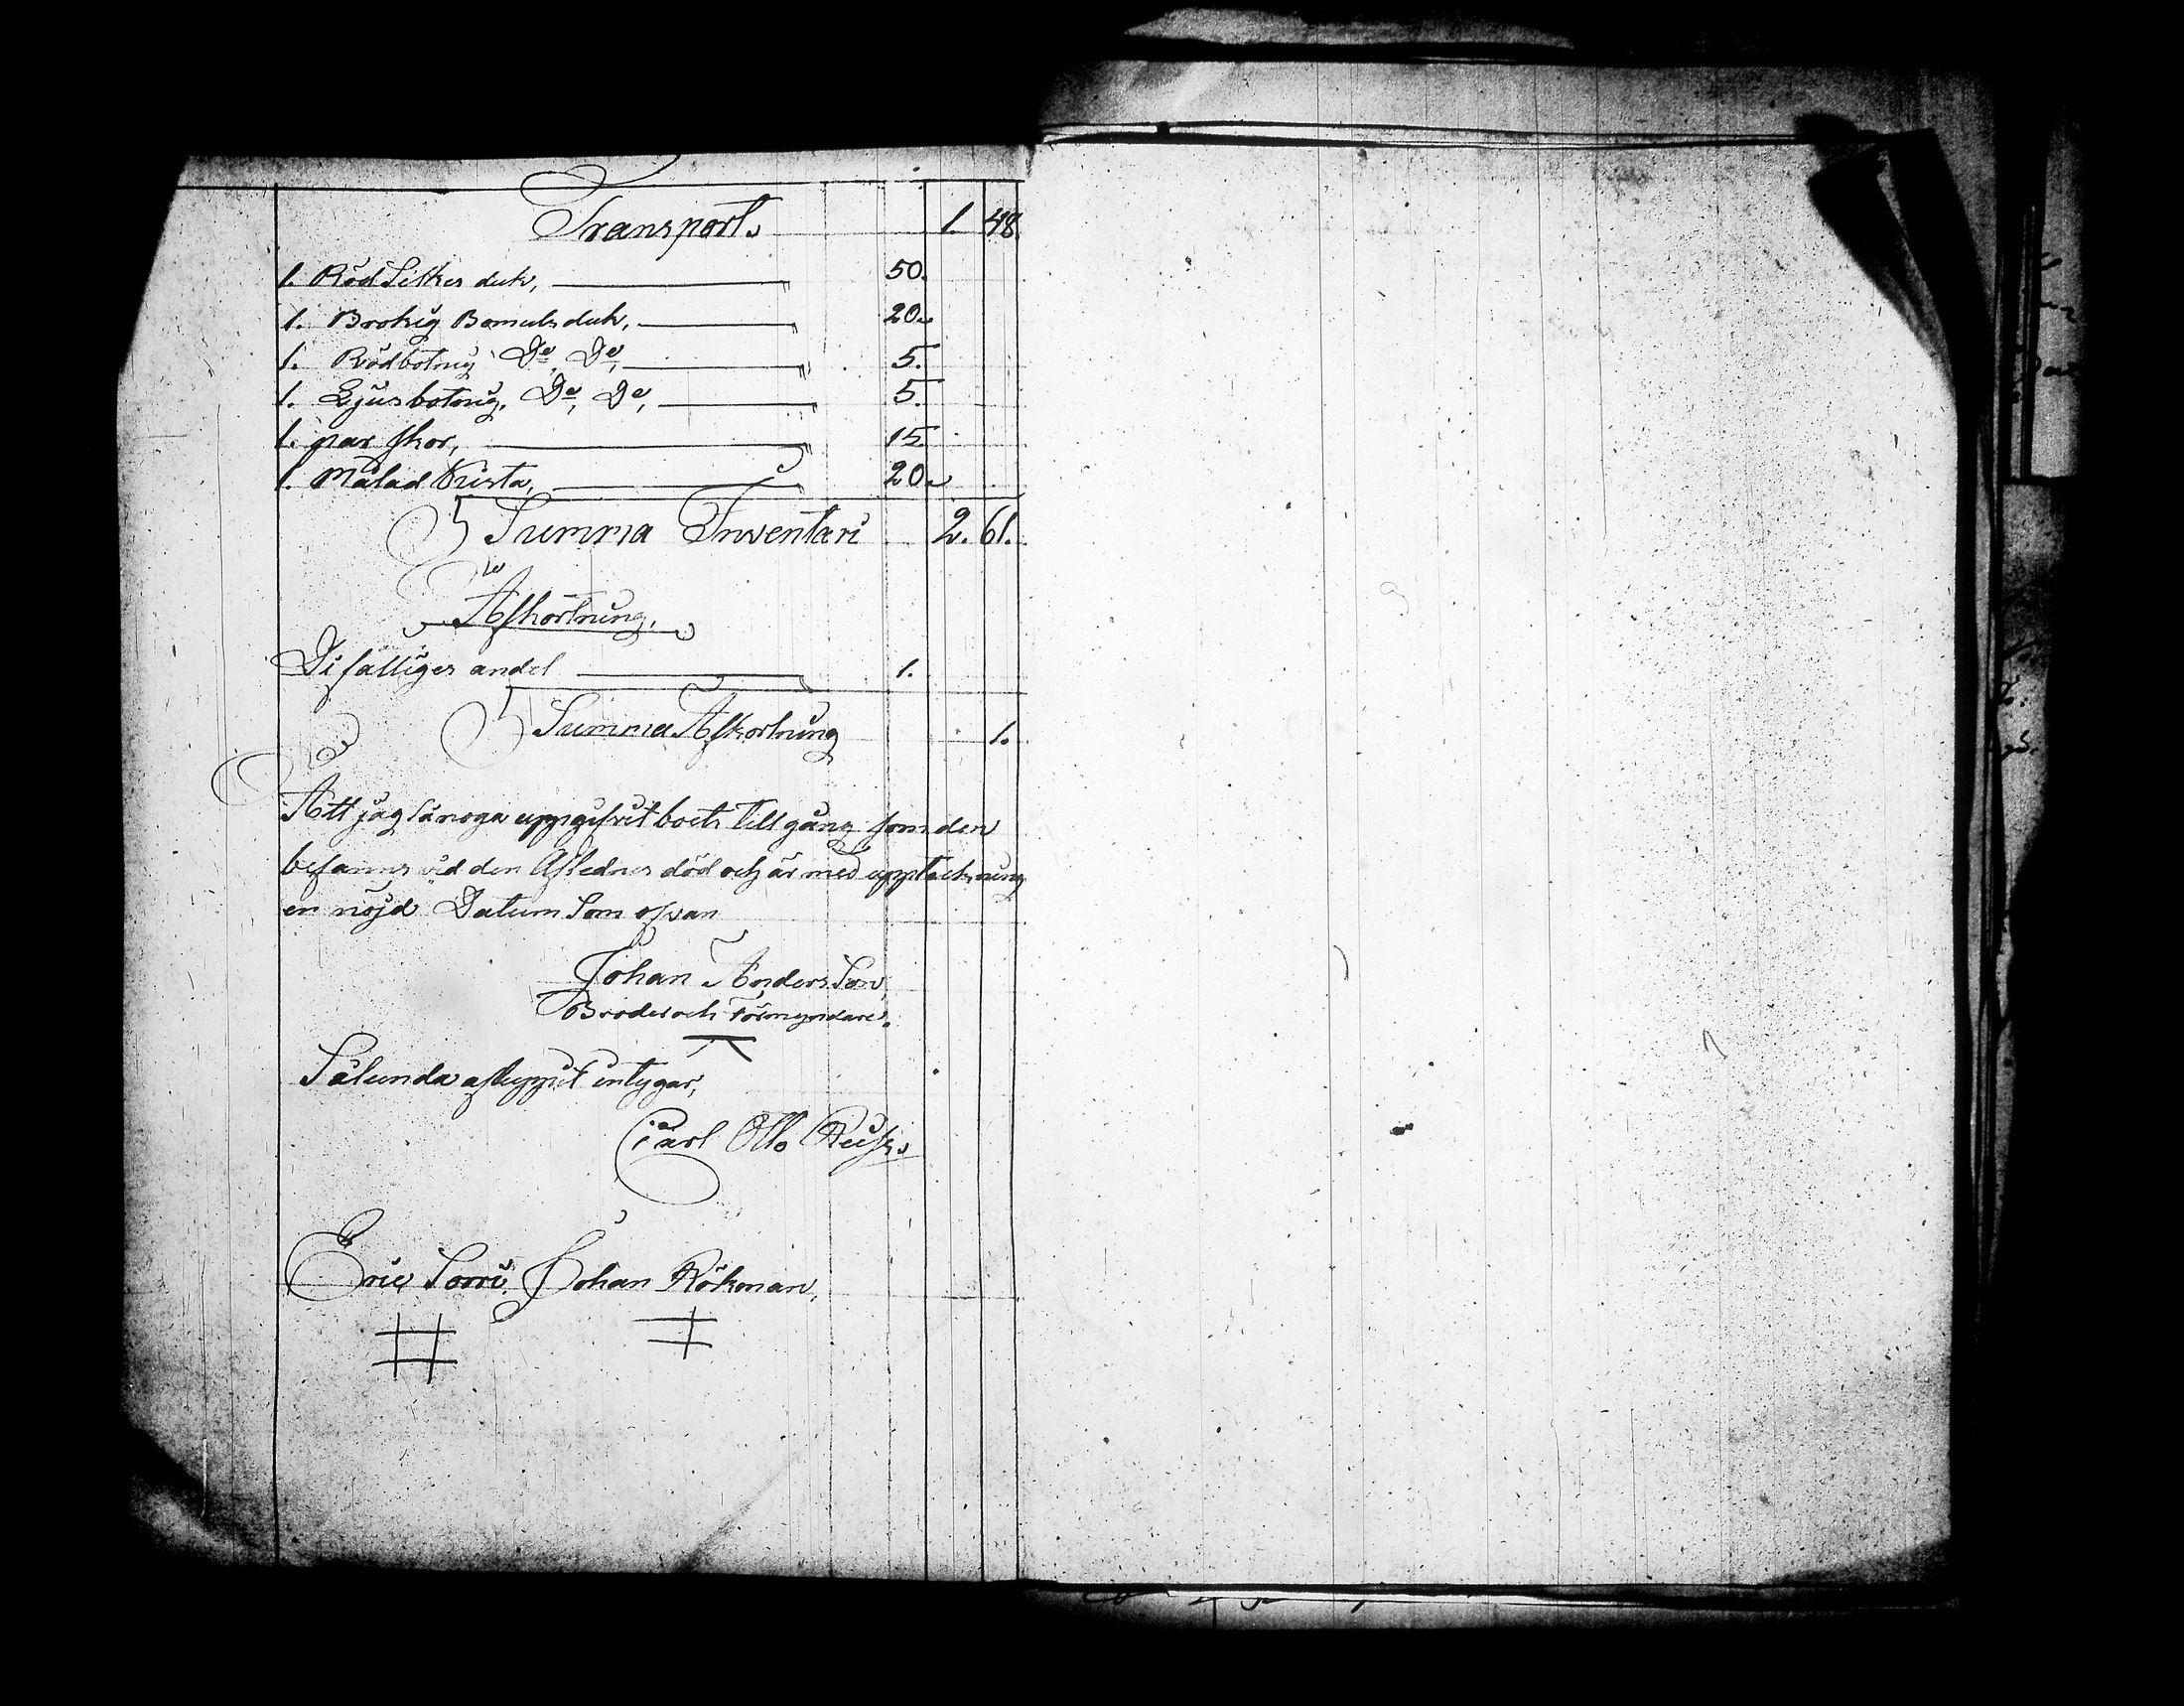 Transport. 1 48.
1. Röd Silkes duk, 50.
1. Brokig Bomulsduk, 20.
1. Rödbotnig Do, Do, 5.
1. Ljusbotnig, Do, Do, 5.
1. par skor, 15.
1. Målad Kista, 20.
Summa Inventari 2. 61.
Afkortning.
De fattiges andel 1.
Summa Afkortning 1.
Att jag så noga uppgifvit boets Tillgång som den
befanns vid den Aflednes död och är med uppteckning
en nöjd Datum Som ofvan
Johan Anders Son,
Broder och Förmyndare.
Sålunda aflupput intygar,
Carl Otto
Eric Sorri, Johan Rökman,